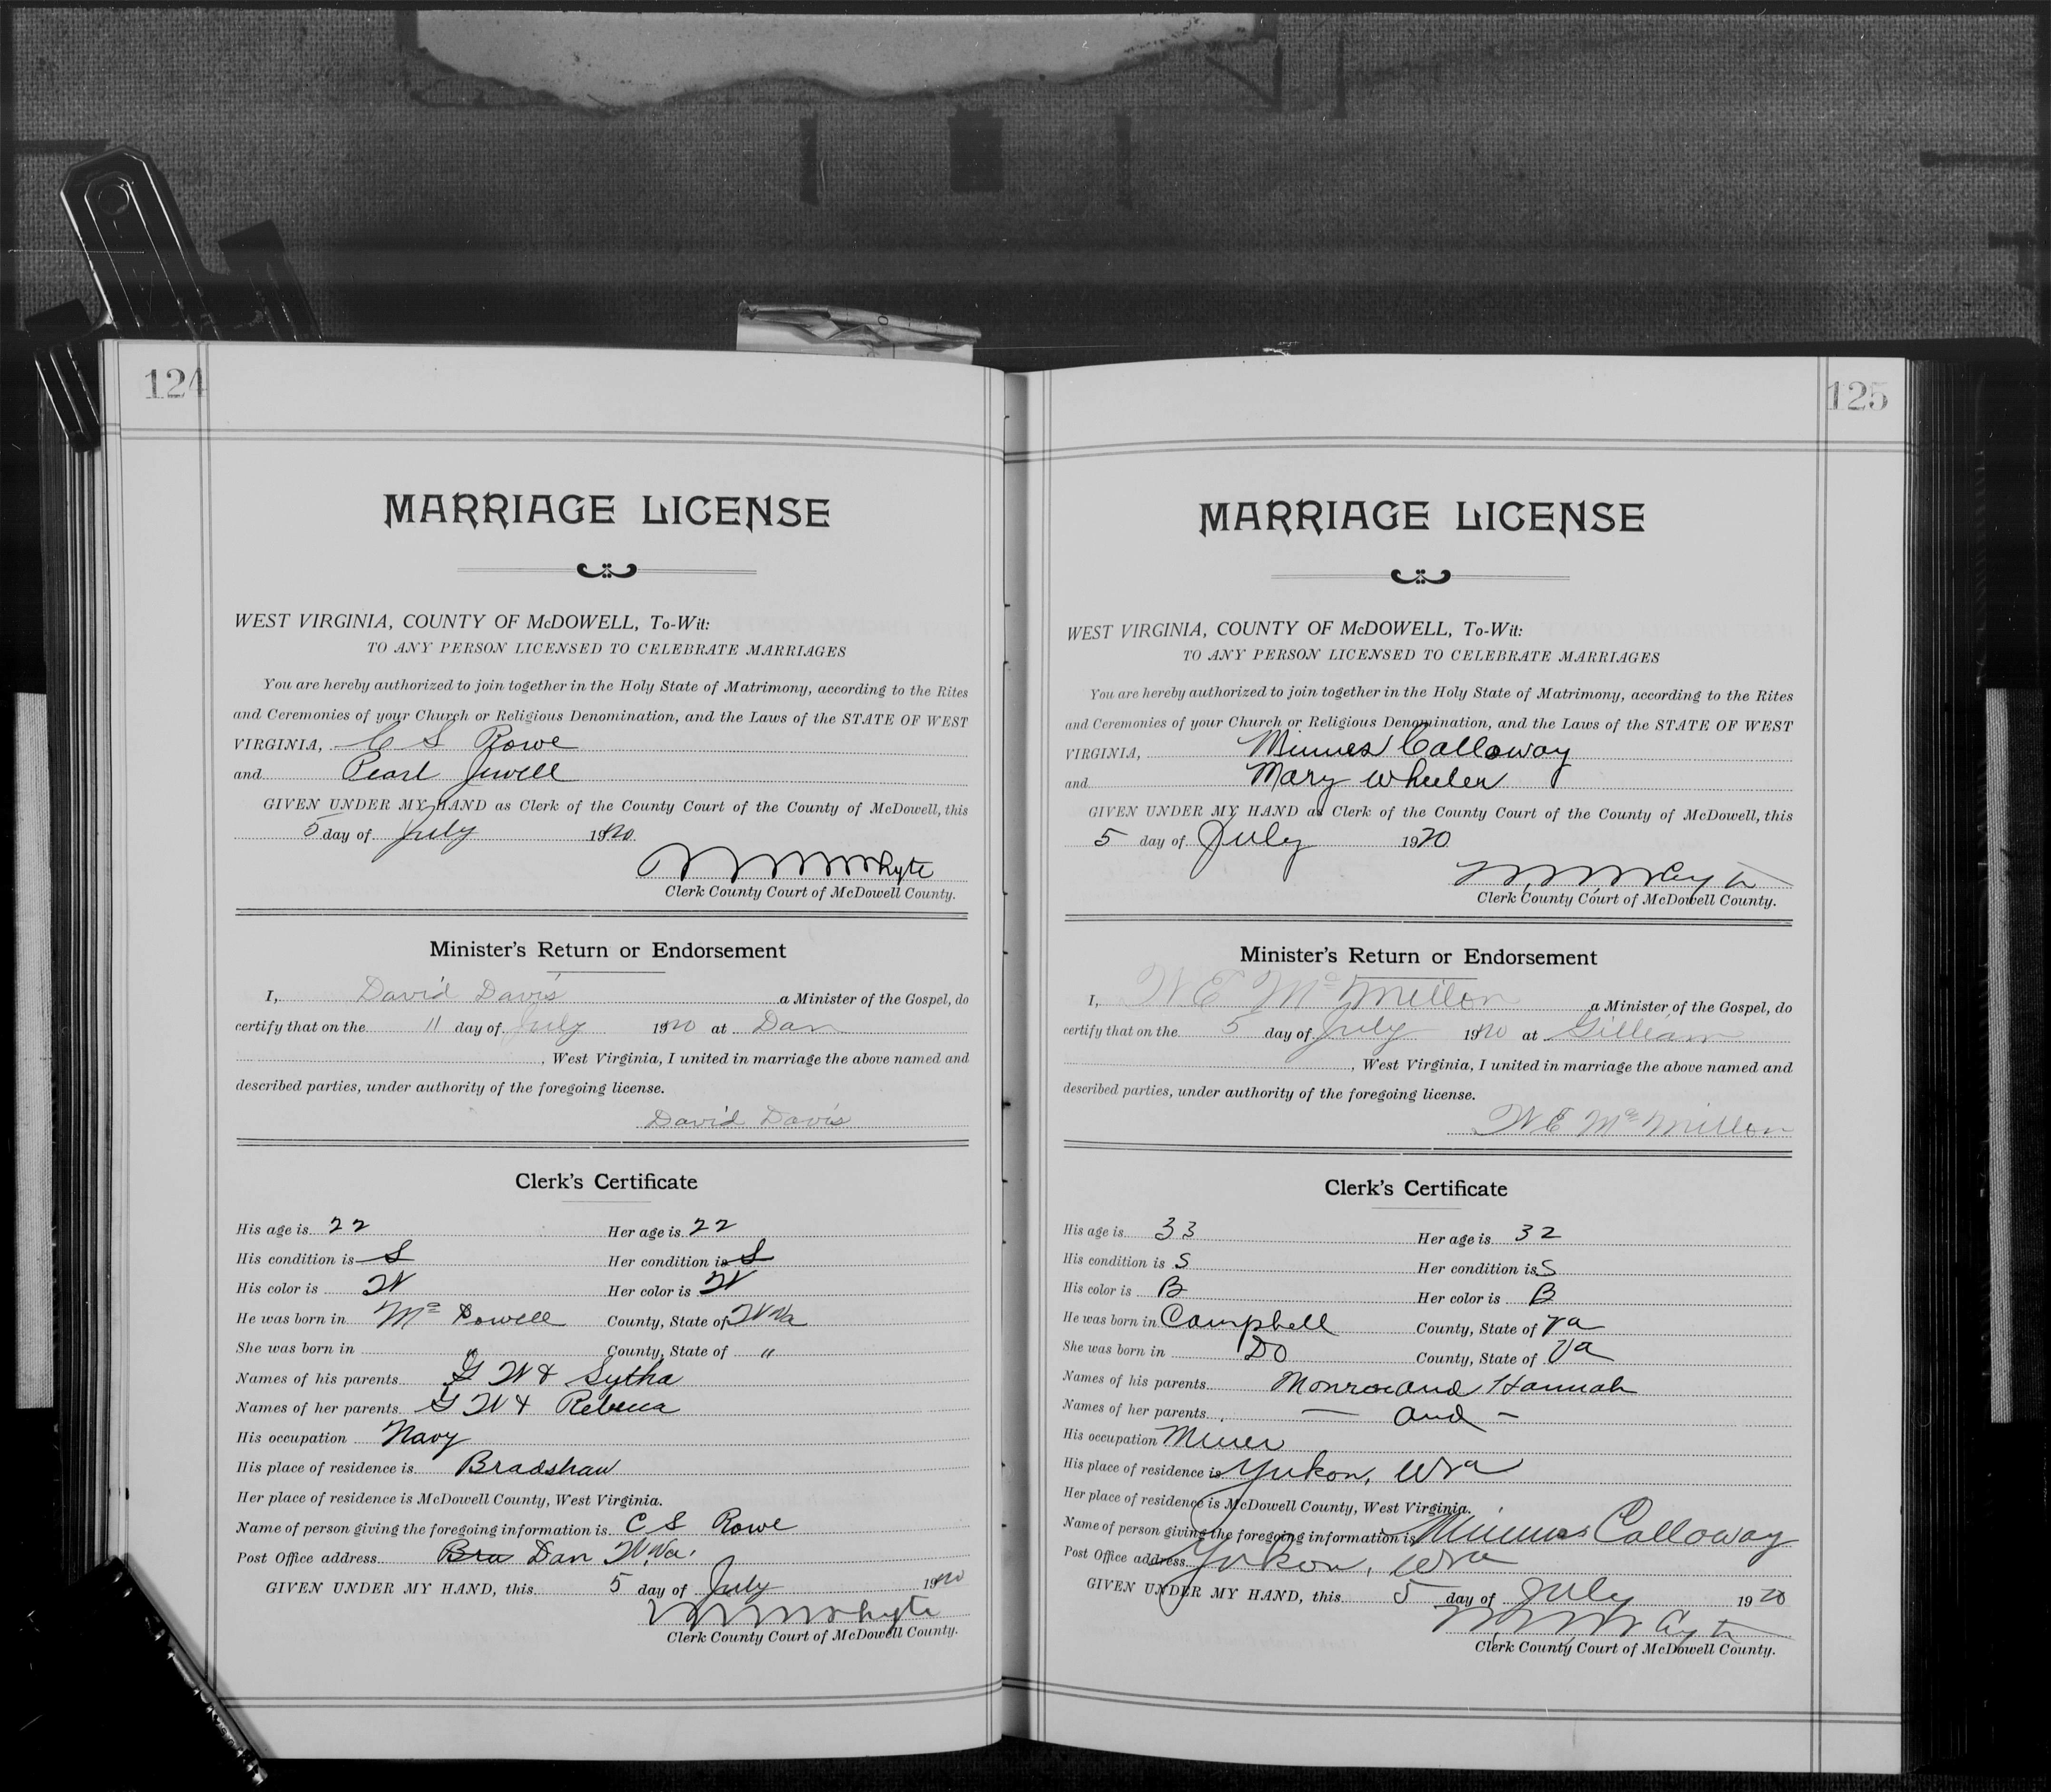 124
MARRIAGE LICENSE
WEST VIRGINIA, COUNTY OF McDOWELL, To-Wit:
TO ANY PERSON LICENSED TO CELEBRATE MARRIAGES
You are hereby authorized to join together in the Holy State of Matrimony, according to the Rites
and Ceremonies of your Church or Religious Denomination, and the Laws of the STATE OF WEST
VIRGINIA, C S Rowe
and Pearl Jewell
GIVEN UNDER MY HAND as Clerk of the County Court of the County of McDowell, this
5 day of July 1920
Whyte
Clerk County Court of McDowell County.
Minister's Return or Endorsement
I, David Davis a Minister of the Gospel, do
certify that on the 11 day of July 1920 at Dan
, West Virginia, I united in marriage the above named and
described parties, under authority of the foregoing license.
David Davis
Clerk's Certificate
His age is 22 Her age is 22
His condition is S Her condition is S
His color is W Her color is W
He was born in Mc Dowell County, State of W Va
She was born in " County, State of "
Names of his parents G W & Sytha
Names of her parents G W & Rebecca
His occupation Navy
His place of residence is Bradshaw
Her place of residence is McDowell County, West Virginia.
Name of person giving the foregoing information is C S Rowe
Post Office address Bra Dan W.Va.
GIVEN UNDER MY HAND, this 5 day of July 1920
Whyte
Clerk County Court of McDowell County.
125
MARRIAGE LICENSE
WEST VIRGINIA, COUNTY OF McDOWELL, To-Wit:
TO ANY PERSON LICENSED TO CELEBRATE MARRIAGES
You are hereby authorized to join together in the Holy State of Matrimony, according to the Rites
and Ceremonies of your Church or Religious Denomination, and the Laws of the STATE OF WEST
VIRGINIA, Minnes Calloway
and Mary Wheeler
GIVEN UNDER MY HAND as Clerk of the County Court of the County of McDowell, this
5 day of July 1920
Clerk County Court of McDowell County.
Minister's Return or Endorsement
I, W E Mc Millon a Minister of the Gospel, do
certify that on the 5 day of July 1920 at Gilliam
, West Virginia, I united in marriage the above named and
described parties, under authority of the foregoing license.
W E Mc Millon
Clerk's Certificate
His age is 33 Her age is 32
His condition is S Her condition is S
His color is B Her color is B
He was born in Campbell County, State of Va
She was born in Do County, State of Va
Names of his parents Monroe and Hannah
Names of her parents — and —
His occupation Miner
His place of residence is Yukon, W Va
Her place of residence is McDowell County, West Virginia.
Name of person giving the foregoing information is Minnes Calloway
Post Office address Yukon, W Va
GIVEN UNDER MY HAND, this 5 day of July 1920
Clerk County Court of McDowell County.